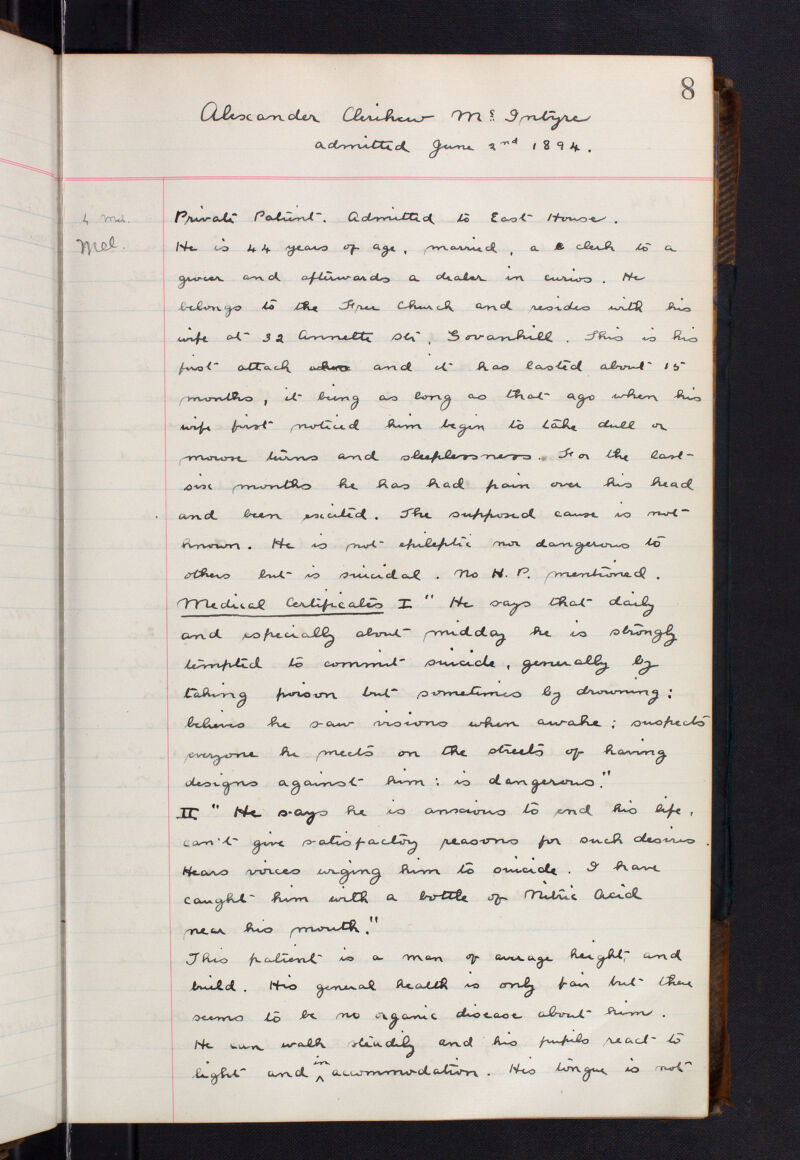 8
Alexander Clerihew Mc Intyre
admitted June 2nd 1894.
4 Mel.
Mel.
Private Patient. Admitted to East House.
He is 44 years of age, married, a clerk to a
grocer and afterwards a dealer in curios. He
belongs to the Free Church and resides with his
wife at 32 Annette St, Govanhill. This is his
first attack and it has lasted about 15
months, it being as long as that ago when his
wife first noticed him begin to take dull or
morose turns and sleeplessness. For the last
six months he has had pain over his head
and been excited. The supposed cause is not
known. He is not epileptic nor dangerous to
others but is suicidal. No H. P. mentioned.
Medical Certificates I " He says that daily
and especially about midday he is strongly
tempted to commit suicide, generally by
taking poison but sometimes by drowning:
believes he saw visions when awake: suspects
everyone he meets on the streets of having
designs against him: is dangerous."
II " He says he is anxious to end his life,
can't give satisfactory reasons for such desires.
Hears voices urging him to suicide. I have
caught him with a bottle of Nitric Acid
near his mouth."
This patient is a man of average height and
build. His general health is only fair but there
seems to be no organic disease about him.
He can walk steadily and his pupils react to
light and in accommodation. His tongue is not